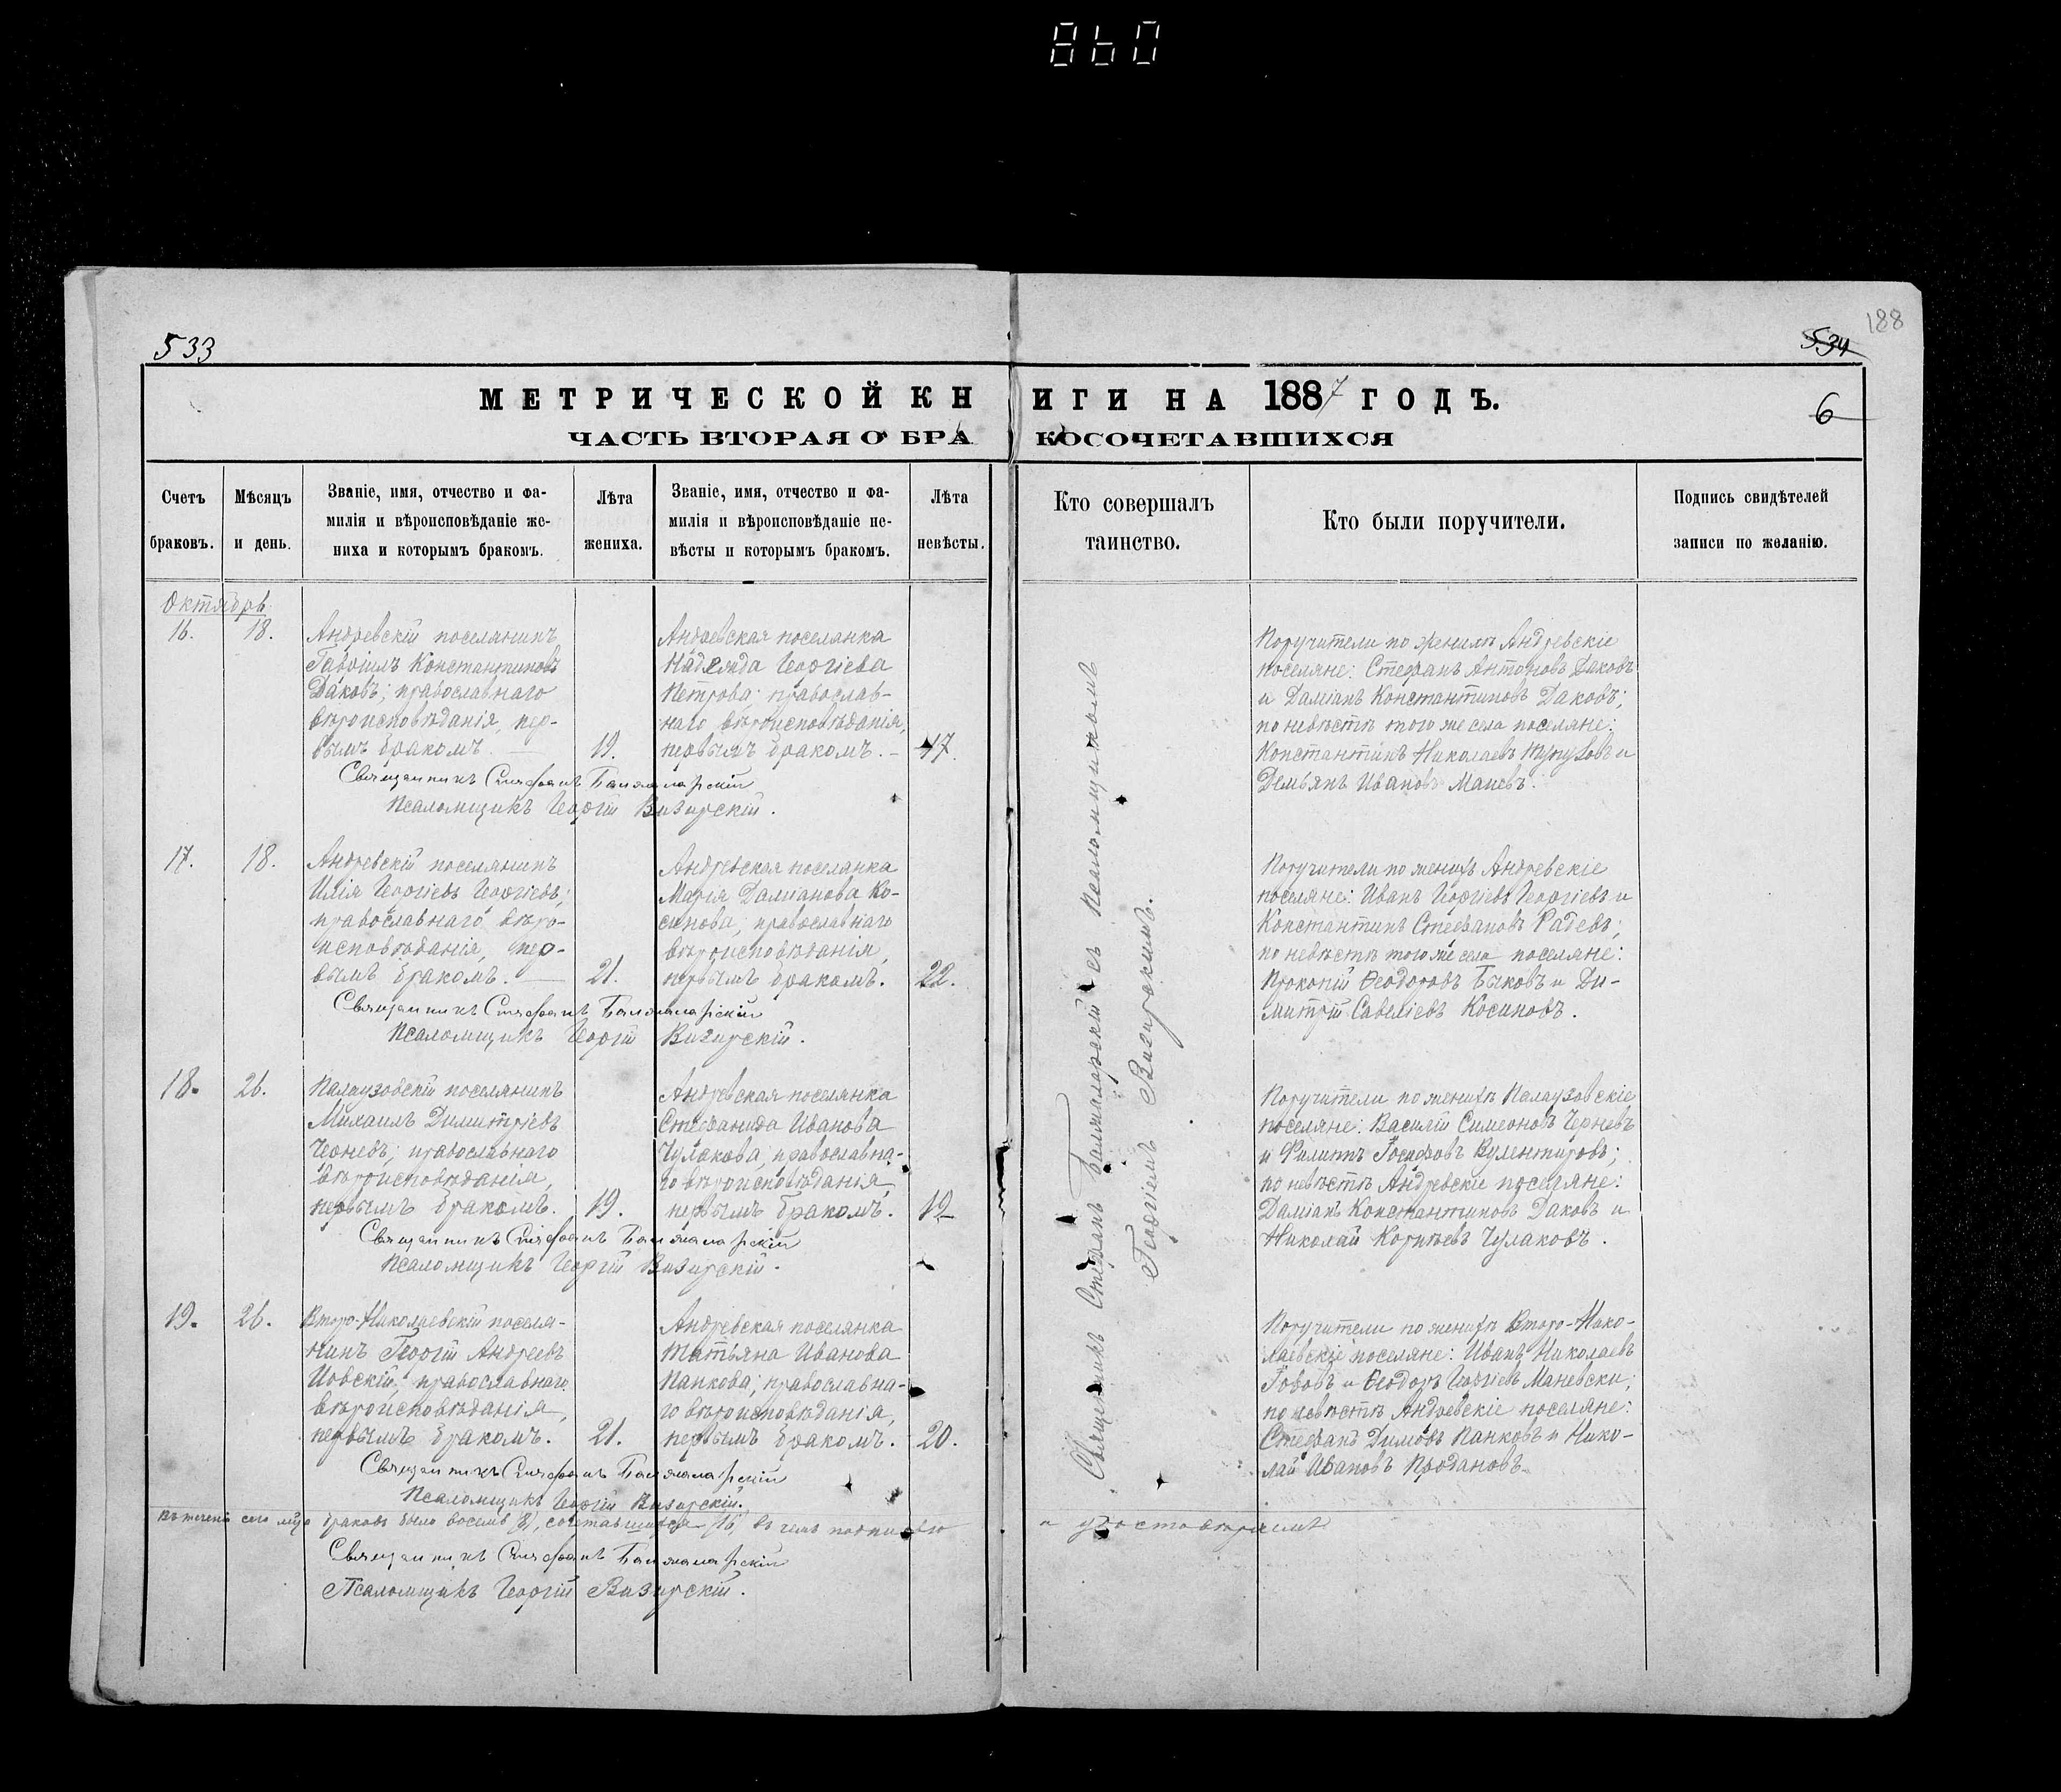 860
533
534
188
МЕТРИЧЕСКОЙ КНИГИ НА 1887 ГОДЪ.
6
ЧАСТЬ ВТОРАЯ О БРАКОСОЧЕТАВШИХСЯ
Счетъ браковъ.
Мѣсяцъ и день.
Званіе, имя, отчество и фа-
милія и вѣроисповѣданіе же-
ниха и которымъ бракомъ.
Лѣта жениха.
Званіе, имя, отчество и фа-
милія и вѣроисповѣданіе не-
вѣсты и которымъ бракомъ.
Лѣта невѣсты.
Кто совершалъ
таинство.
Кто были поручители.
Подпись свидѣтелей
записи по желанію.
Октябрь
16. 18.
Андреевскій поселянинъ
Гавріилъ Константиновъ
Даковъ; православнаго
вѣроисповѣданія, пер-
вымъ бракомъ. — 19.
Андреевская поселянка
Надежда Георгіева
Петрова; православ-
наго вѣроисповѣданія,
первымъ бракомъ. — 17.
Поручители по женихѣ Андреевскіе
поселяне: Стефанъ Антоновъ Даковъ
и Даміанъ Константиновъ Даковъ;
по невѣстѣ того же села поселяне:
Константинъ Николаевъ и
Демьянъ Ивановъ Маневъ.
Священникъ Стефанъ Балжаларскій
Псаломщикъ Георгій Визирскій.
17. 18.
Андреевскій поселянинъ
Илія Георгіевъ Георгіевъ;
православнаго вѣро-
исповѣданія, пер-
вымъ бракомъ. — 21.
Андреевская поселянка
Марія Даміанова Ко-
синова; православнаго
вѣроисповѣданія,
первымъ бракомъ. 22.
Поручители по женихѣ Андреевскіе
поселяне: Иванъ Георгіевъ Георгіевъ и
Константинъ Стефановъ Радевъ;
по невѣстѣ того же села поселяне:
Прокопій Ѳеодоровъ Быковъ и Ди-
митрій Савеліевъ Косиновъ.
Священникъ Стефанъ Балжаларскій
Псаломщикъ Георгій Визирскій.
18. 26.
Палаузовскій поселянинъ
Михаилъ Димитріевъ
Черневъ; православнаго
вѣроисповѣданія,
первымъ бракомъ. 19.
Андреевская поселянка
Стефанида Иванова
Чулакова; православна-
го вѣроисповѣданія,
первымъ бракомъ. 19
Поручители по женихѣ Палаузовскіе
поселяне: Василій Симеоновъ Черневъ
и Филиппъ Іосифовъ;
по невѣстѣ Андреевскіе поселяне:
Даміанъ Константиновъ Даковъ и
Николай Чулаковъ.
Священникъ Стефанъ Балжаларскій
Псаломщикъ Георгій Визирскій.
19. 26.
Второ-Николаевскій поселя-
нинъ Георгій Андреевъ
Іовскій; православнаго
вѣроисповѣданія,
первымъ бракомъ. 21.
Андреевская поселянка
Татьяна Иванова
Панкова; православна-
го вѣроисповѣданія,
первымъ бракомъ. 20.
Поручители по женихѣ Второ-Нико-
лаевскіе поселяне: Иванъ Николаевъ
и Ѳеодоръ Георгіевъ Маневски;
по невѣстѣ Андреевскіе поселяне:
Стефанъ Димовъ Панковъ и Нико-
лай Ивановъ Продановъ.
Священникъ Стефанъ Балжаларскій
Псаломщикъ Георгій Визирскій.
Священникъ Стефанъ Балжаларскій съ Псаломщикомъ
Георгіемъ Визирскимъ.
Въ теченіи сего м-ца браковъ было восемь (8), сочетавшихся 16, въ чемъ подписью и удостовѣряемъ
Священникъ Стефанъ Балжаларскій
Псаломщикъ Георгій Визирскій.